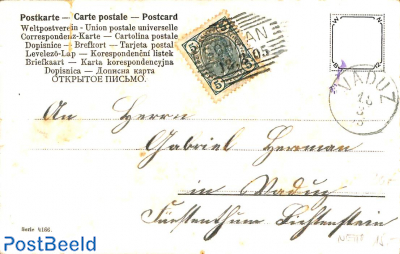 Postkarte – Carte postale – Postcard
Weltpostverein - Union postale universelle
Correspondenz-Karte – Cartolina postale
Dopisnice – Brefkort – Tarjeta postal
Levelező-Lap – Korespondenční lístek
Briefkaart – Karta korespondencyjna
Dopisnica – Дописна карта
ОТКРЫТОЕ ПИСЬМО.
5 5
5 5
AN
05
VADUZ
An Herrn
Gabriel Herman
in Vaduz
Fürstenthum Lichtenstein
Serie 4166.
PostBeeld